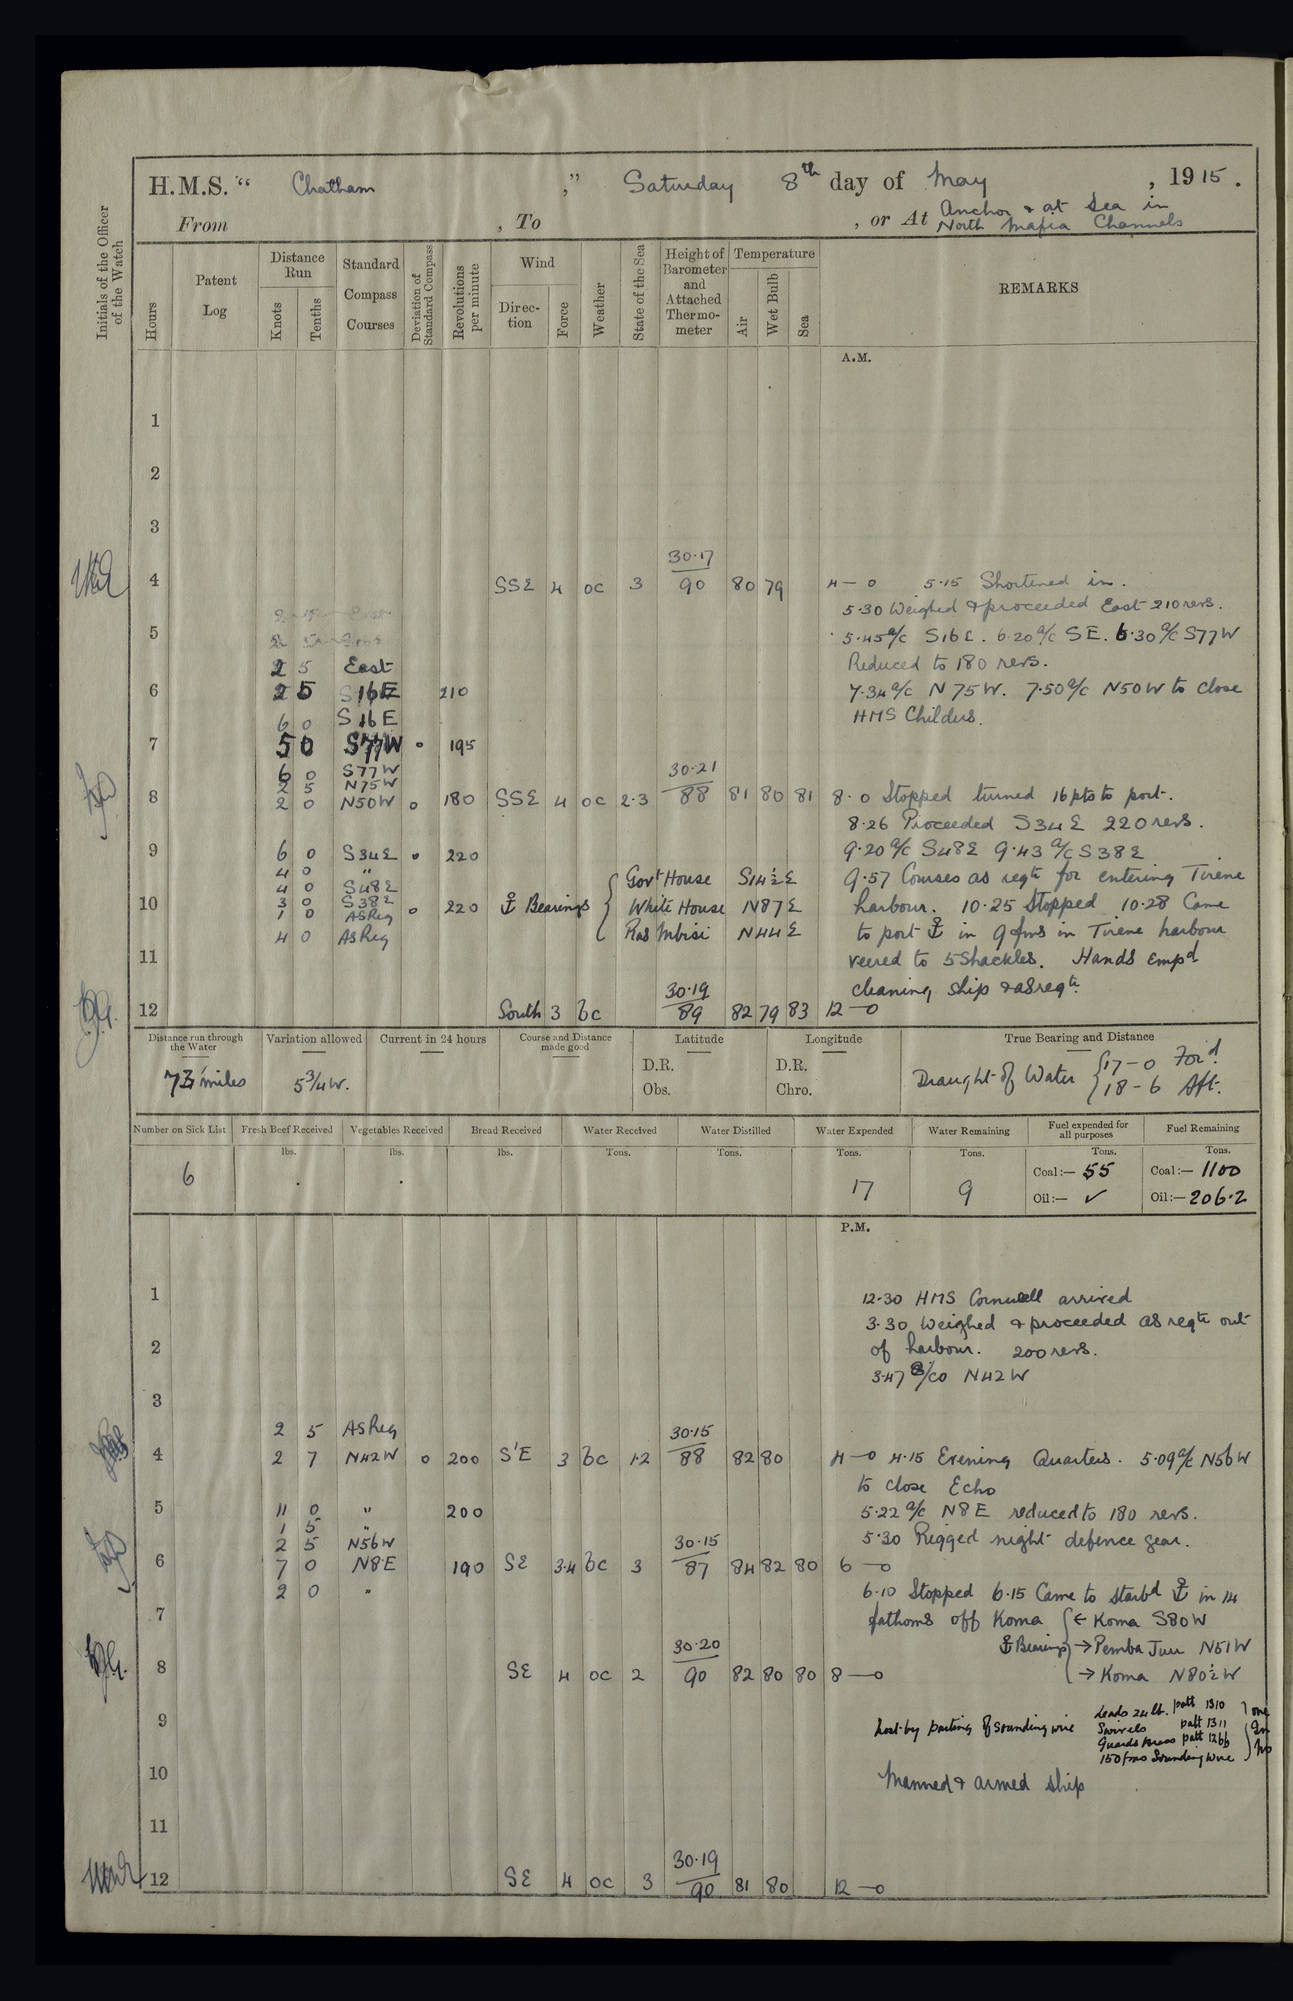 H.M.S. “ Chatham ,” Saturday 8th day of May , 1915 .
From , To , or At Anchor & at Sea in
North Mafia Channels
Initials of the Officer of the Watch
Hours
Patent Log
Distance Run
Knots
Tenths
Standard Compass Courses
Deviation of Standard Compass
Revolutions per minute
Wind
Direc-tion
Force
Weather
State of the Sea
Height of Barometer and Attached Thermo-meter
Temperature
Air
Wet Bulb
Sea
REMARKS
A.M.
1
2
3
30·17
4 SSE 4 oc 3 90 80 79 4 — 0 5·15 Shortened in.
5·30 Weighed & proceeded East 210 revs.
5 5·45 a/c S16E. 6·20 a/c SE. 6·30 a/c S77W
2 5 East Reduced to 180 revs.
6 2 5 S16E 210 7·34 a/c N75W. 7·50 a/c N50W to close
6 0 S16E HMS Childers.
7 5 0 S77W 0 195
6 0 S77W 30·21
2 5 N75W
8 2 0 N50W 0 180 SSE 4 oc 2·3 88 81 80 81 8·0 Stopped turned 16pts to port.
8·26 Proceeded S34E 220 revs.
9 6 0 S34E 0 220 9·20 a/c S48E 9·43 a/c S38E
4 0 " Govt House S14½E 9·57 Courses as reqte for entering Tirene
4 0 S48E
10 3 0 S38E White House N87E harbour. 10·25 Stopped 10·28 Came
1 0 AsReq 0 220 ⚓ Bearings
4 0 AsReq Ras Mbisi N44E to port ⚓ in 9 fms in Tirene harbour
11 veered to 5 Shackles. Hands empd
30·19 cleaning ship & as reqte.
12 South 3 bc 89 82 79 83 12 — 0
Distance run through the Water
Variation allowed
Current in 24 hours
Course and Distance made good
Latitude
Longitude
True Bearing and Distance
miles 5¾W. D.R. D.R. Draught of Water 17 - 0 For'd.
Obs. Chro. 18 - 6 Aft.
Number on Sick List
Fresh Beef Received
Vegetables Received
Bread Received
Water Received
Water Distilled
Water Expended
Water Remaining
Fuel expended for all purposes
Fuel Remaining
lbs. lbs. lbs. Tons. Tons. Tons. Tons. Tons. Tons.
6 17 9 Coal:— 55 Coal:— 1100
Oil:— ✓ Oil:— 206·2
P.M.
1 12·30 HMS Cornwall arrived
3·30 Weighed & proceeded as reqte out
2 of harbour. 200 revs.
3·47 a/co N42W
3
2 5 AsReq 30·15
4 2 7 N42W 0 200 S'E 3 bc 1·2 88 82 80 4 — 0 4·15 Evening Quarters. 5·09 a/c N56W
to close Echo
5 11 0 " 200 5·22 a/c N8E reduced to 180 revs.
1 5 "
2 5 N56W 30·15 5·30 Rigged night defence gear.
6 7 0 N8E 190 SE 3·4 bc 3 87 84 82 80 6 — 0
2 0 " 6·10 Stopped 6·15 Came to starbd ⚓ in 14
7 fathoms off Koma ← Koma S80W
30·20 ⚓ Bearings → Pemba Juu N51W
8 SE 4 oc 2 90 82 80 80 8 — 0 → Koma N80½W
9 Lost by parting of sounding wire Leads 24 lb. patt 1310
Swivels patt 1311
Guards brass patt 1266
150 fms Sounding wire
one In No
10 Manned & armed ship
11
30·19
12 SE 4 oc 3 90 81 80 12 — 0